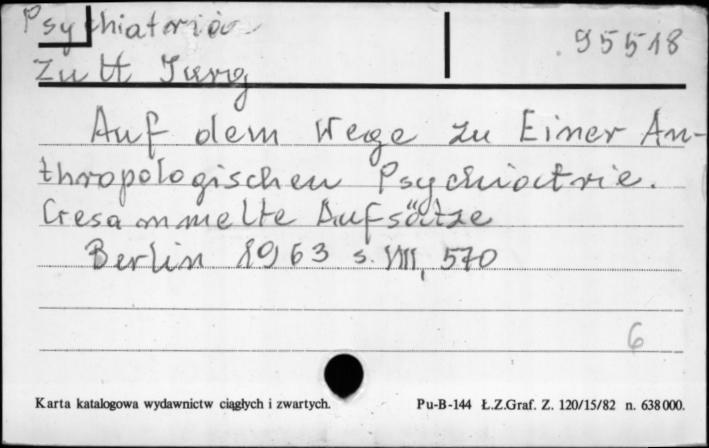 Psychiatria
95518
Zutt Jurg
Auf dem Wege zu Einer An-
thropologischen Psychiatrie.
Gesammelte Aufsätze
Berlin 1963 s. VIII, 570
6
Karta katalogowa wydawnictw ciągłych i zwartych.
Pu-B-144 Ł.Z.Graf. Z. 120/15/82 n. 638000.